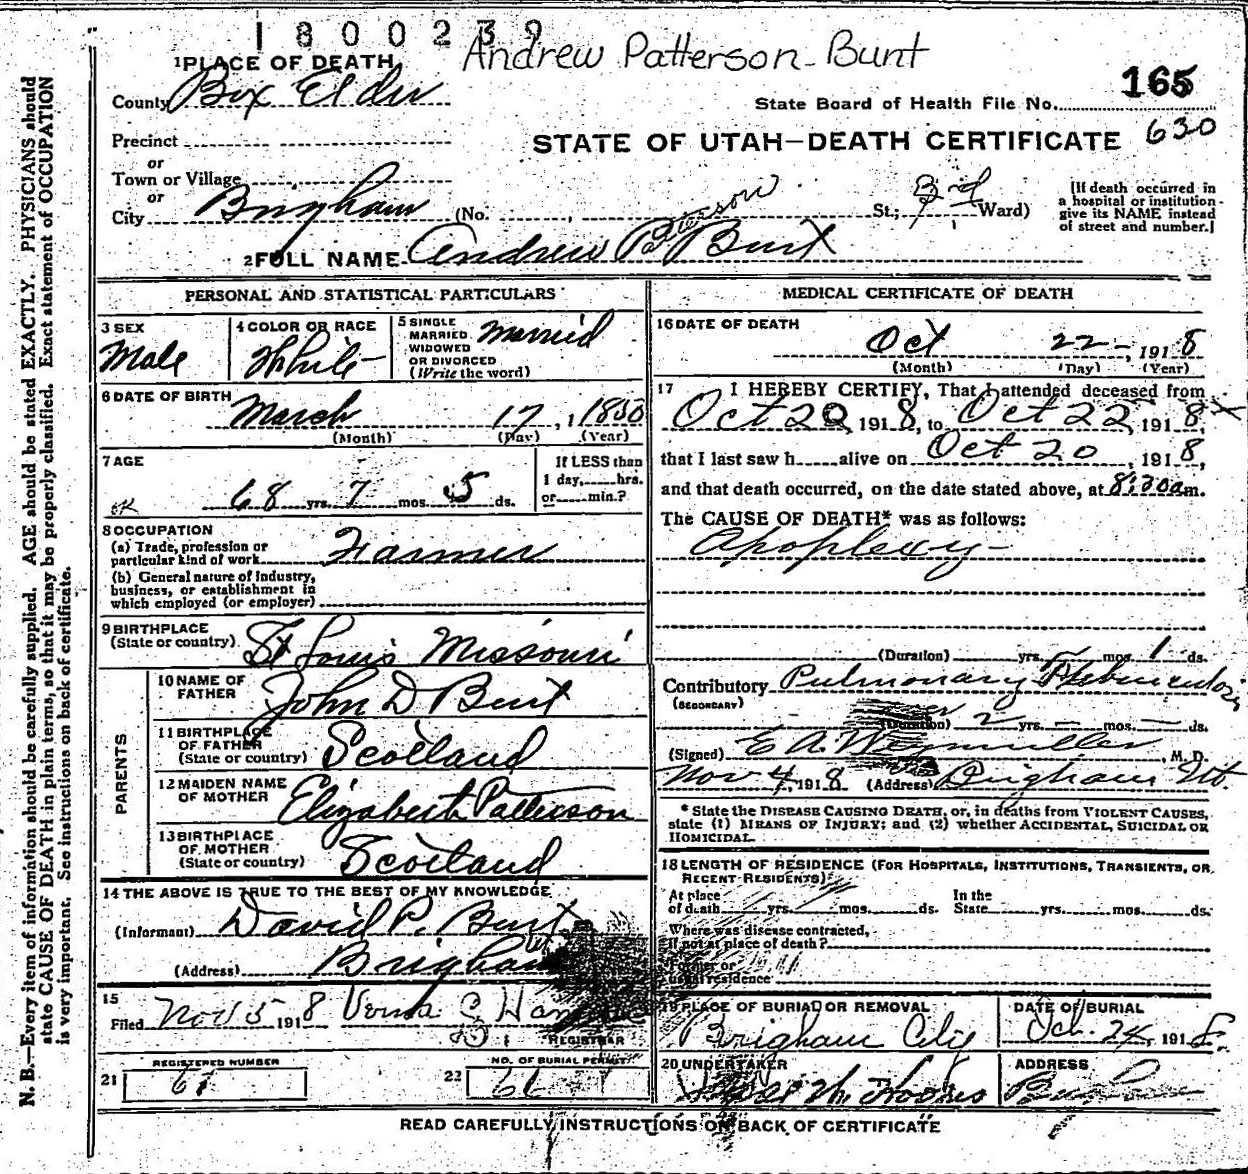 1800239
Andrew Patterson Bunt
1 PLACE OF DEATH
County Box Elder
165
State Board of Health File No.
Precinct
STATE OF UTAH—DEATH CERTIFICATE 630
or
Town or Village
or
City Brigham (No. St.; 3rd Ward)
[If death occurred in
a hospital or institution
give its NAME instead
of street and number.]
Patterson
2 FULL NAME Andrew P Bunt
PERSONAL AND STATISTICAL PARTICULARS
3 SEX
Male
4 COLOR OR RACE
White
5 SINGLE
MARRIED
WIDOWED
OR DIVORCED
(Write the word)
Married
6 DATE OF BIRTH
March 17, 1850
(Month) (Day) (Year)
7 AGE
OK 68 yrs. 7 mos. 5 ds.
If LESS than
1 day, hrs.
or min.?
8 OCCUPATION
(a) Trade, profession or
particular kind of work Farmer
(b) General nature of Industry,
business, or establishment in
which employed (or employer)
9 BIRTHPLACE
(State or country) St Louis Missouri
PARENTS
10 NAME OF
FATHER John D Bunt
11 BIRTHPLACE
OF FATHER
(State or country) Scotland
12 MAIDEN NAME
OF MOTHER Elizabeth Patterson
13 BIRTHPLACE
OF MOTHER
(State or country) Scotland
14 THE ABOVE IS TRUE TO THE BEST OF MY KNOWLEDGE
(Informant) David P. Bunt
(Address) Brigham
15
Filed Nov 5 1918 Verna C.
REGISTRAR
REGISTERED NUMBER
21 61
NO. OF BURIAL PERMIT
22 61
MEDICAL CERTIFICATE OF DEATH
16 DATE OF DEATH
Oct 22, 1918
(Month) (Day) (Year)
17 I HEREBY CERTIFY, That I attended deceased from
Oct 20, 1918, to Oct 22, 1918, x
that I last saw h alive on Oct 20, 1918,
and that death occurred, on the date stated above, at 8:30 a m.
The CAUSE OF DEATH* was as follows:
Apoplexy
(Duration) yrs. mos. 1 ds.
Contributory Pulmonary
(SECONDARY)
(Duration) 2 yrs. — mos. — ds.
(Signed) E A. Weymuller, M. D.
Nov 4, 1918 (Address) Brigham Ut.
* State the DISEASE CAUSING DEATH, or, in deaths from VIOLENT CAUSES,
state (1) MEANS OF INJURY; and (2) whether ACCIDENTAL, SUICIDAL OR
HOMICIDAL.
18 LENGTH OF RESIDENCE (FOR HOSPITALS, INSTITUTIONS, TRANSIENTS, OR
RECENT RESIDENTS)
At place
of death yrs. mos. ds.
In the
State yrs. mos. ds.
Where was disease contracted,
if not at place of death?
Former or
usual residence
19 PLACE OF BURIAL OR REMOVAL
Brigham City
DATE OF BURIAL
Oct. 24, 1918
20 UNDERTAKER
ADDRESS
Brigham
READ CAREFULLY INSTRUCTIONS ON BACK OF CERTIFICATE
N. B.—Every item of information should be carefully supplied. AGE should be stated EXACTLY. PHYSICIANS should
state CAUSE OF DEATH in plain terms, so that it may be properly classified. Exact statement of OCCUPATION
is very important. See instructions on back of certificate.